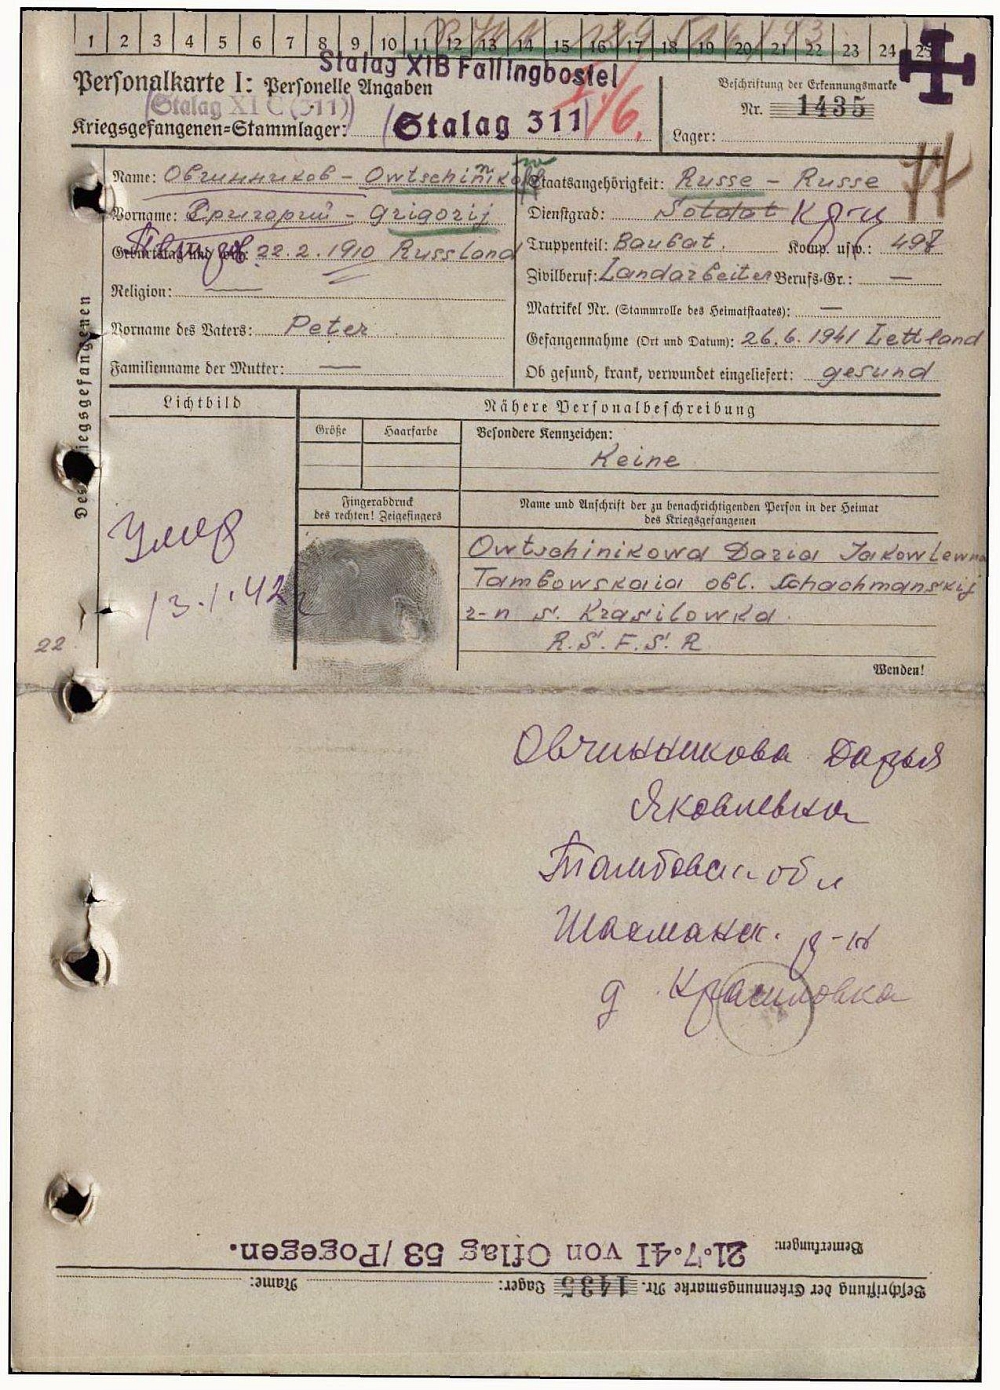 1 2 3 4 5 6 7 8 9 10 11 12 13 14 15 16 17 18 19 20 21 22 23 24 25
Stalag XIB Fallingbostel
Personalkarte I: Personelle Angaben
Beschriftung der Erkennungsmarke
(Stalag XI C (311))
Nr. 1435
Kriegsgefangenen-Stammlager: (Stalag 311)
Lager:
Name: Овчинников - Owtschinikoff
Staatsangehörigkeit: Russe - Russe
Vorname: Григорий - Grigorij
Dienstgrad: Soldat
Geburtstag und -ort: 22.2.1910 Russland
Truppenteil: Baubat. Komp. usw.: 497
Zivilberuf: Landarbeiter Berufs-Gr.: —
Religion: —
Matrikel Nr. (Stammrolle des Heimatstaates): —
Vorname des Vaters: Peter
Gefangennahme (Ort und Datum): 26.6.1941 Lettland
Familienname der Mutter: —
Ob gesund, krank, verwundet eingeliefert: gesund
Des Kriegsgefangenen
Lichtbild
Nähere Personalbeschreibung
Größe Haarfarbe Besondere Kennzeichen:
Keine
Fingerabdruck
des rechten! Zeigefingers
Name und Anschrift der zu benachrichtigenden Person in der Heimat
des Kriegsgefangenen
Умер
13.1.42
Owtschinikowa Daria Jakowlewna
Tambowskaia obl. Schachmanskij
r-n s. Krasilowka
R.S.F.S.R
22
Wenden!
Овчинникова Дарья
Яковлевна
Тамбовск. обл
Шахманск. р-н
д Красиловка
Bemerkungen: 21.7.41 von Oflag 53 / Pogegen.
Beschriftung der Erkennungsmarke Nr. 1435 Lager: Name: